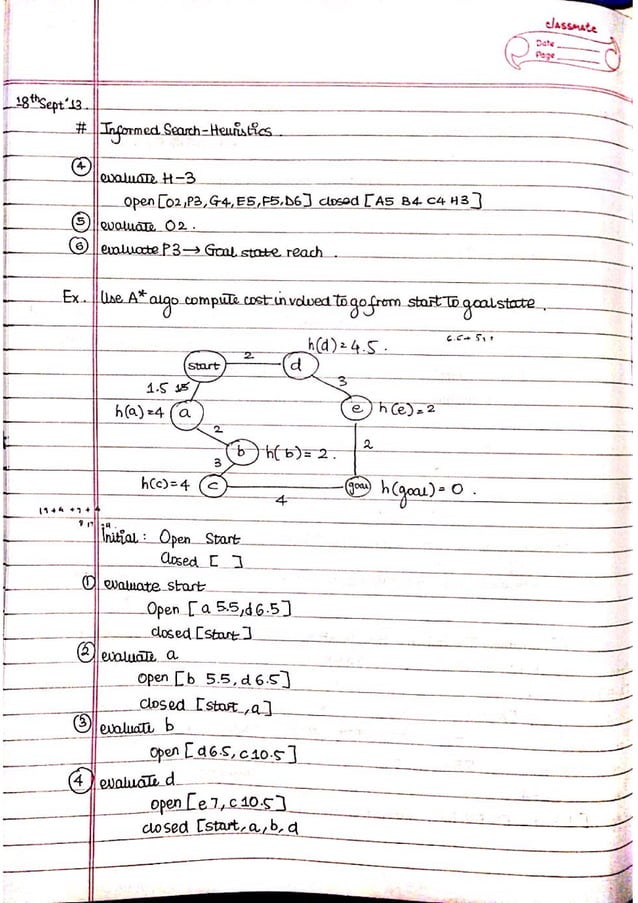 classmate
Date
Page
18th Sept '13.
# Informed Search-Heuristics.
④ evaluate H-3
open [O2, P3, G4, E5, F5, D6] closed [A5 B4 C4 H3]
⑤ evaluate O2.
⑥ evaluate P3 → Goal state reach.
Ex. Use A* algo compute cost involved to go from start to goal state.
h(d) = 4.5.
start 2 d
1.5 3
h(a)=4 a e h(e)=2
2 2
b h(b)=2.
3
h(c)=4 c 4 goal h(goal)=0.
Initial: Open Start
Closed [ ]
① evaluate start
Open [a 5.5, d 6.5]
closed [Start]
② evaluate a
open [b 5.5, d 6.5]
closed [start, a]
③ evaluate b
open [d 6.5, c 10.5]
④ evaluate d
open [e 7, c 10.5]
closed [start, a, b, d